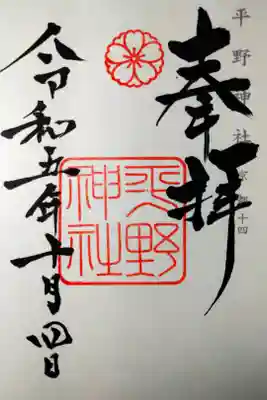 平野神社
京都十四
奉拝
平野
神社
令和五年十月四日